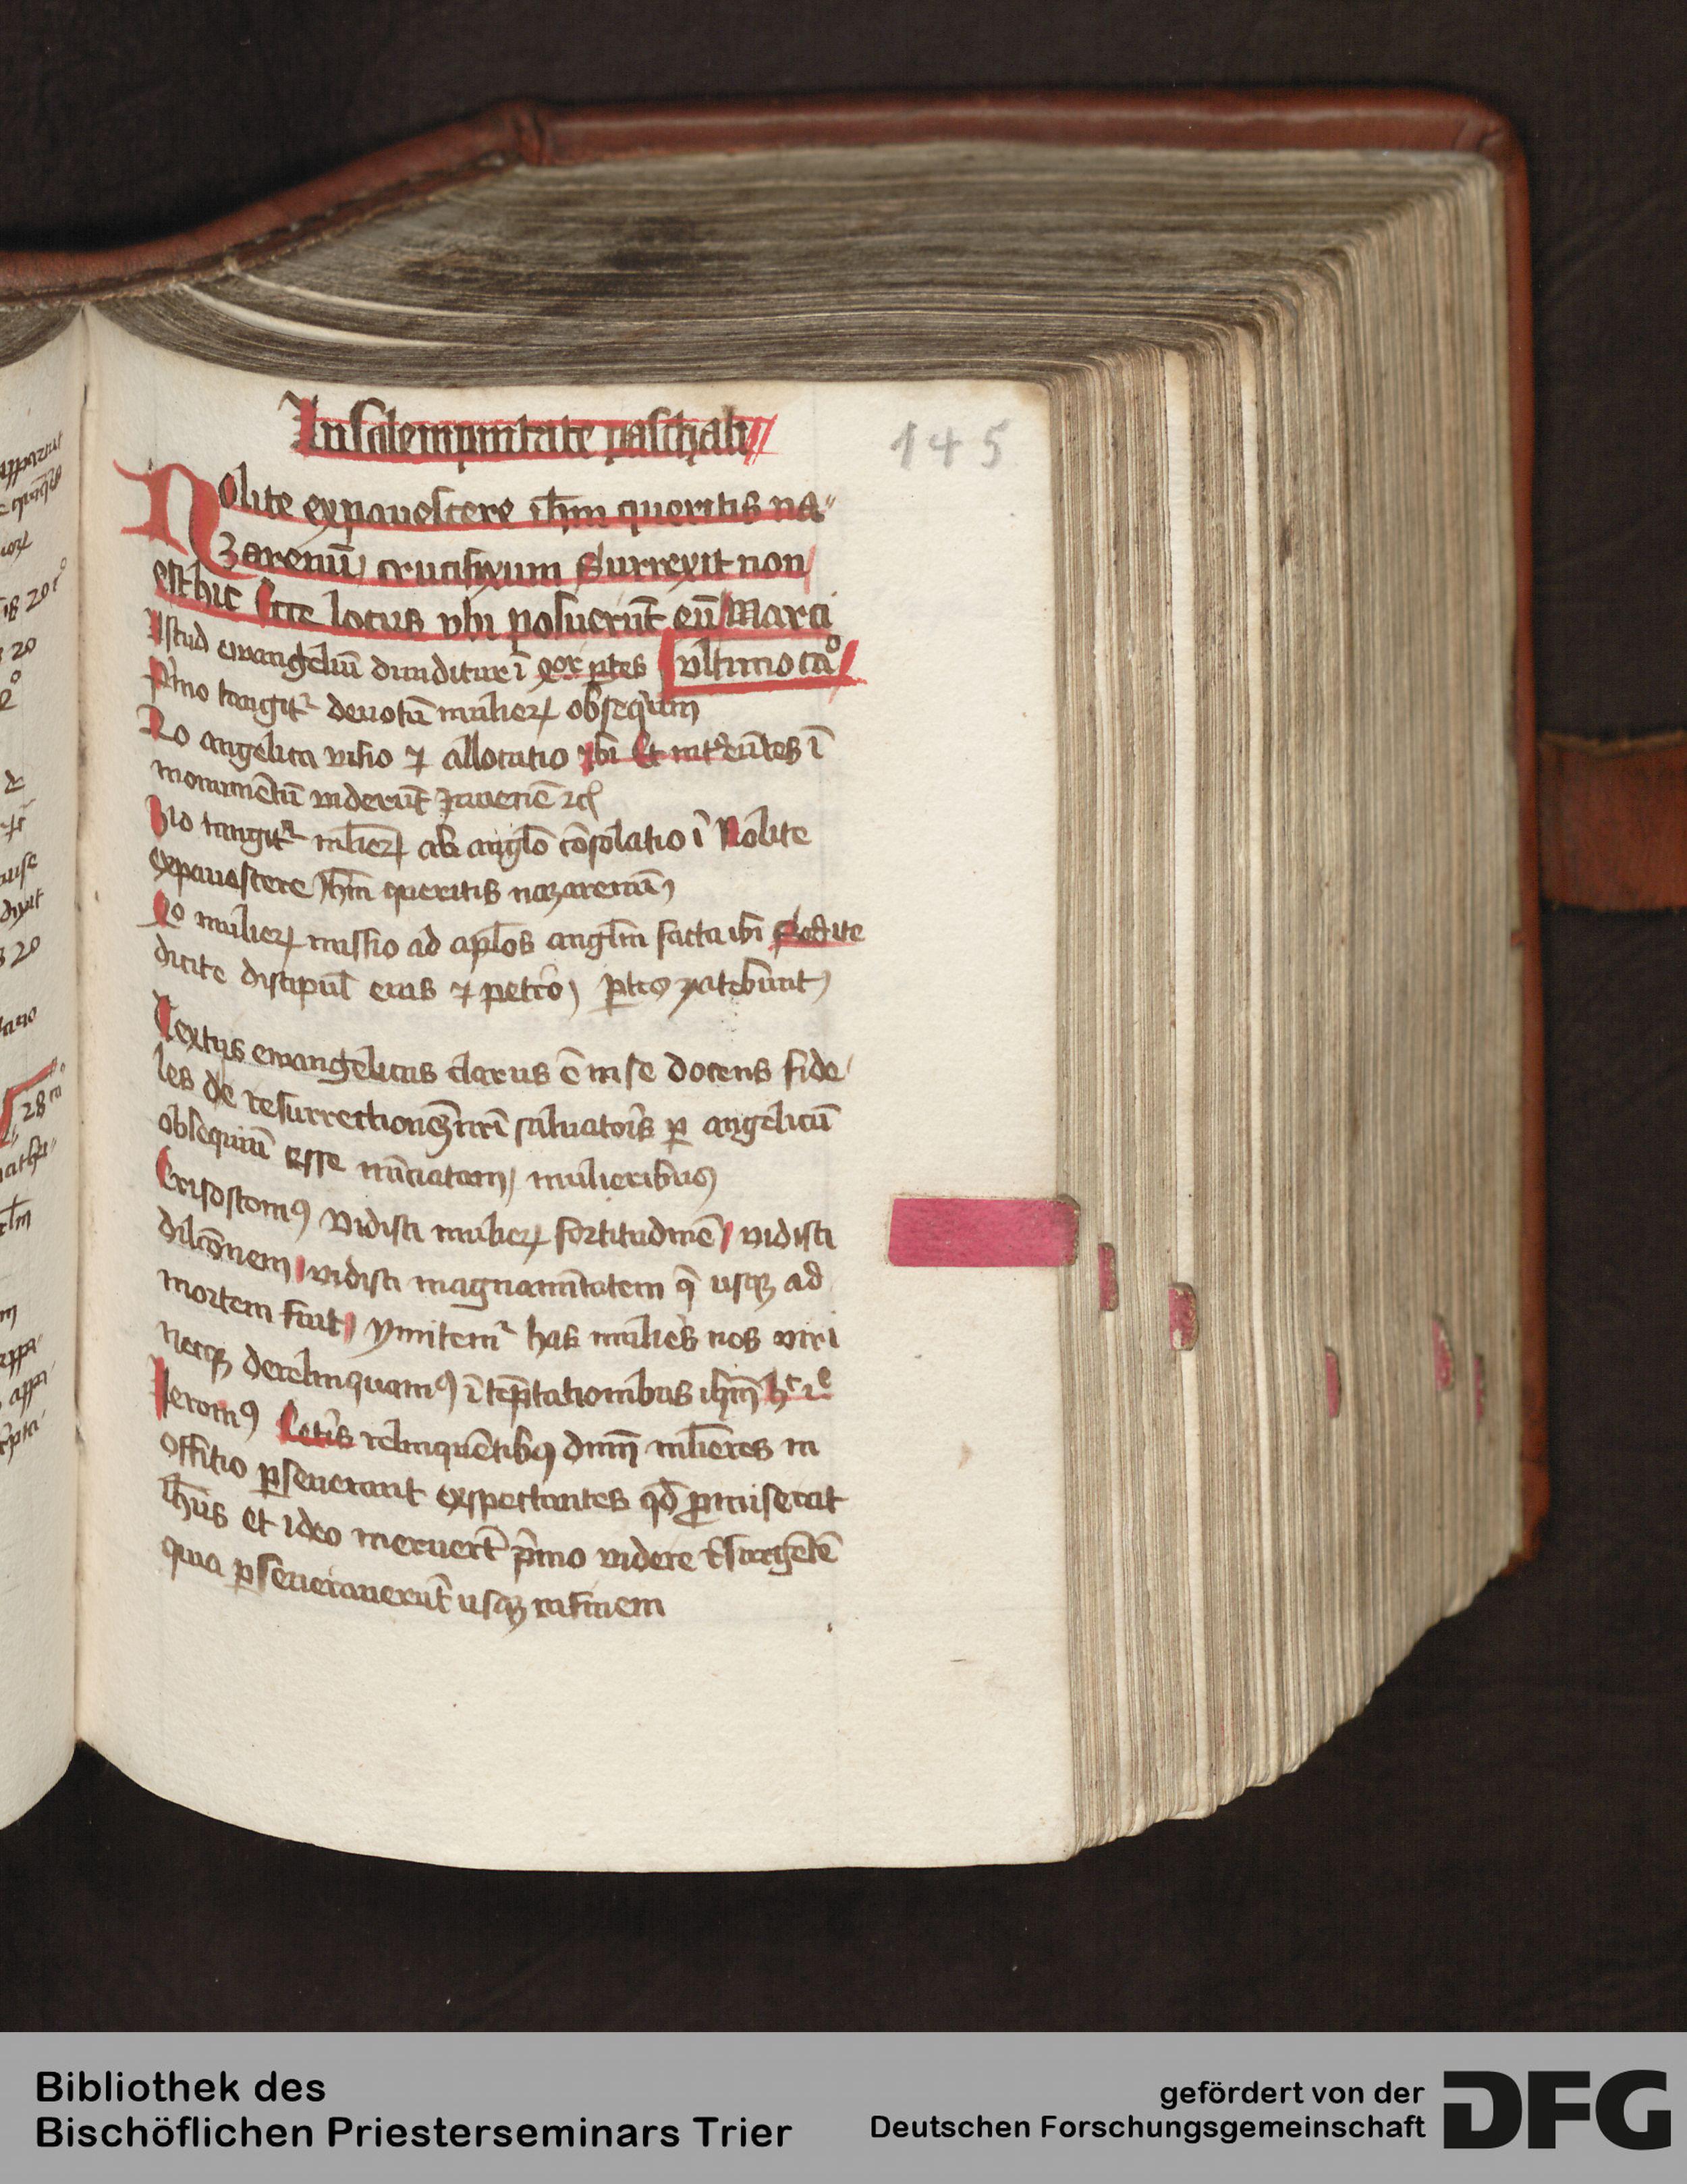 In solempnitate paschali
145
Nolite expauescere ihm̄ queritis na
zarenū crucifixum Surrexit non
est hic Ecce locus vbi posuerūt eū Marci
Istud ewangeliū diuiditur ī 4or ptes vltimo caº
Pͥmo tangitᷣ deuotū mulieꝝ obsequium
2o angelica visio ⁊ allocutio ibi Et introeūtes ī
monumētū viderūt iuuenē ⁊c̄
3io tangitᷣ mlieꝝ ab anglo cōsolatio ī Nolite
expauescere ihm̄ queritis nazarenū
4o mulieꝝ missio ad aplos anglm facta ibi Sed ite
dicite discipul eius ⁊ petro ꝑtes patebunt
Textus ewangelicus clarus ē in se docens fide
les de resurrectionē nr̄i saluatoris ꝑ angelicū
obsequiū esse nūciatam mulieribus
Crisostomꝰ Vidisti mulieꝝ fortitudinē vidisti
dilcōnem vidisti magnanīitatem q̄ usqꝫ ad
mortem fuit ymitemᷣ has mulieres nos viri
necqꝫ derelinquamꝰ ī tēptationibus ihm̄ hc ie
Ieronꝰ Ceteris relinquētibꝰ dnm̄ mlieres in
offitio ꝑseuerant exspectantes qd̄ ꝓmiserat
Ihūs et ideo meruert̄ pͥmo videre resurgētē
quia ꝑseuerauerūt usqꝫ in finem
20
20
28 ca
Bibliothek des
Bischöflichen Priesterseminars Trier
gefördert von der
Deutschen Forschungsgemeinschaft
DFG